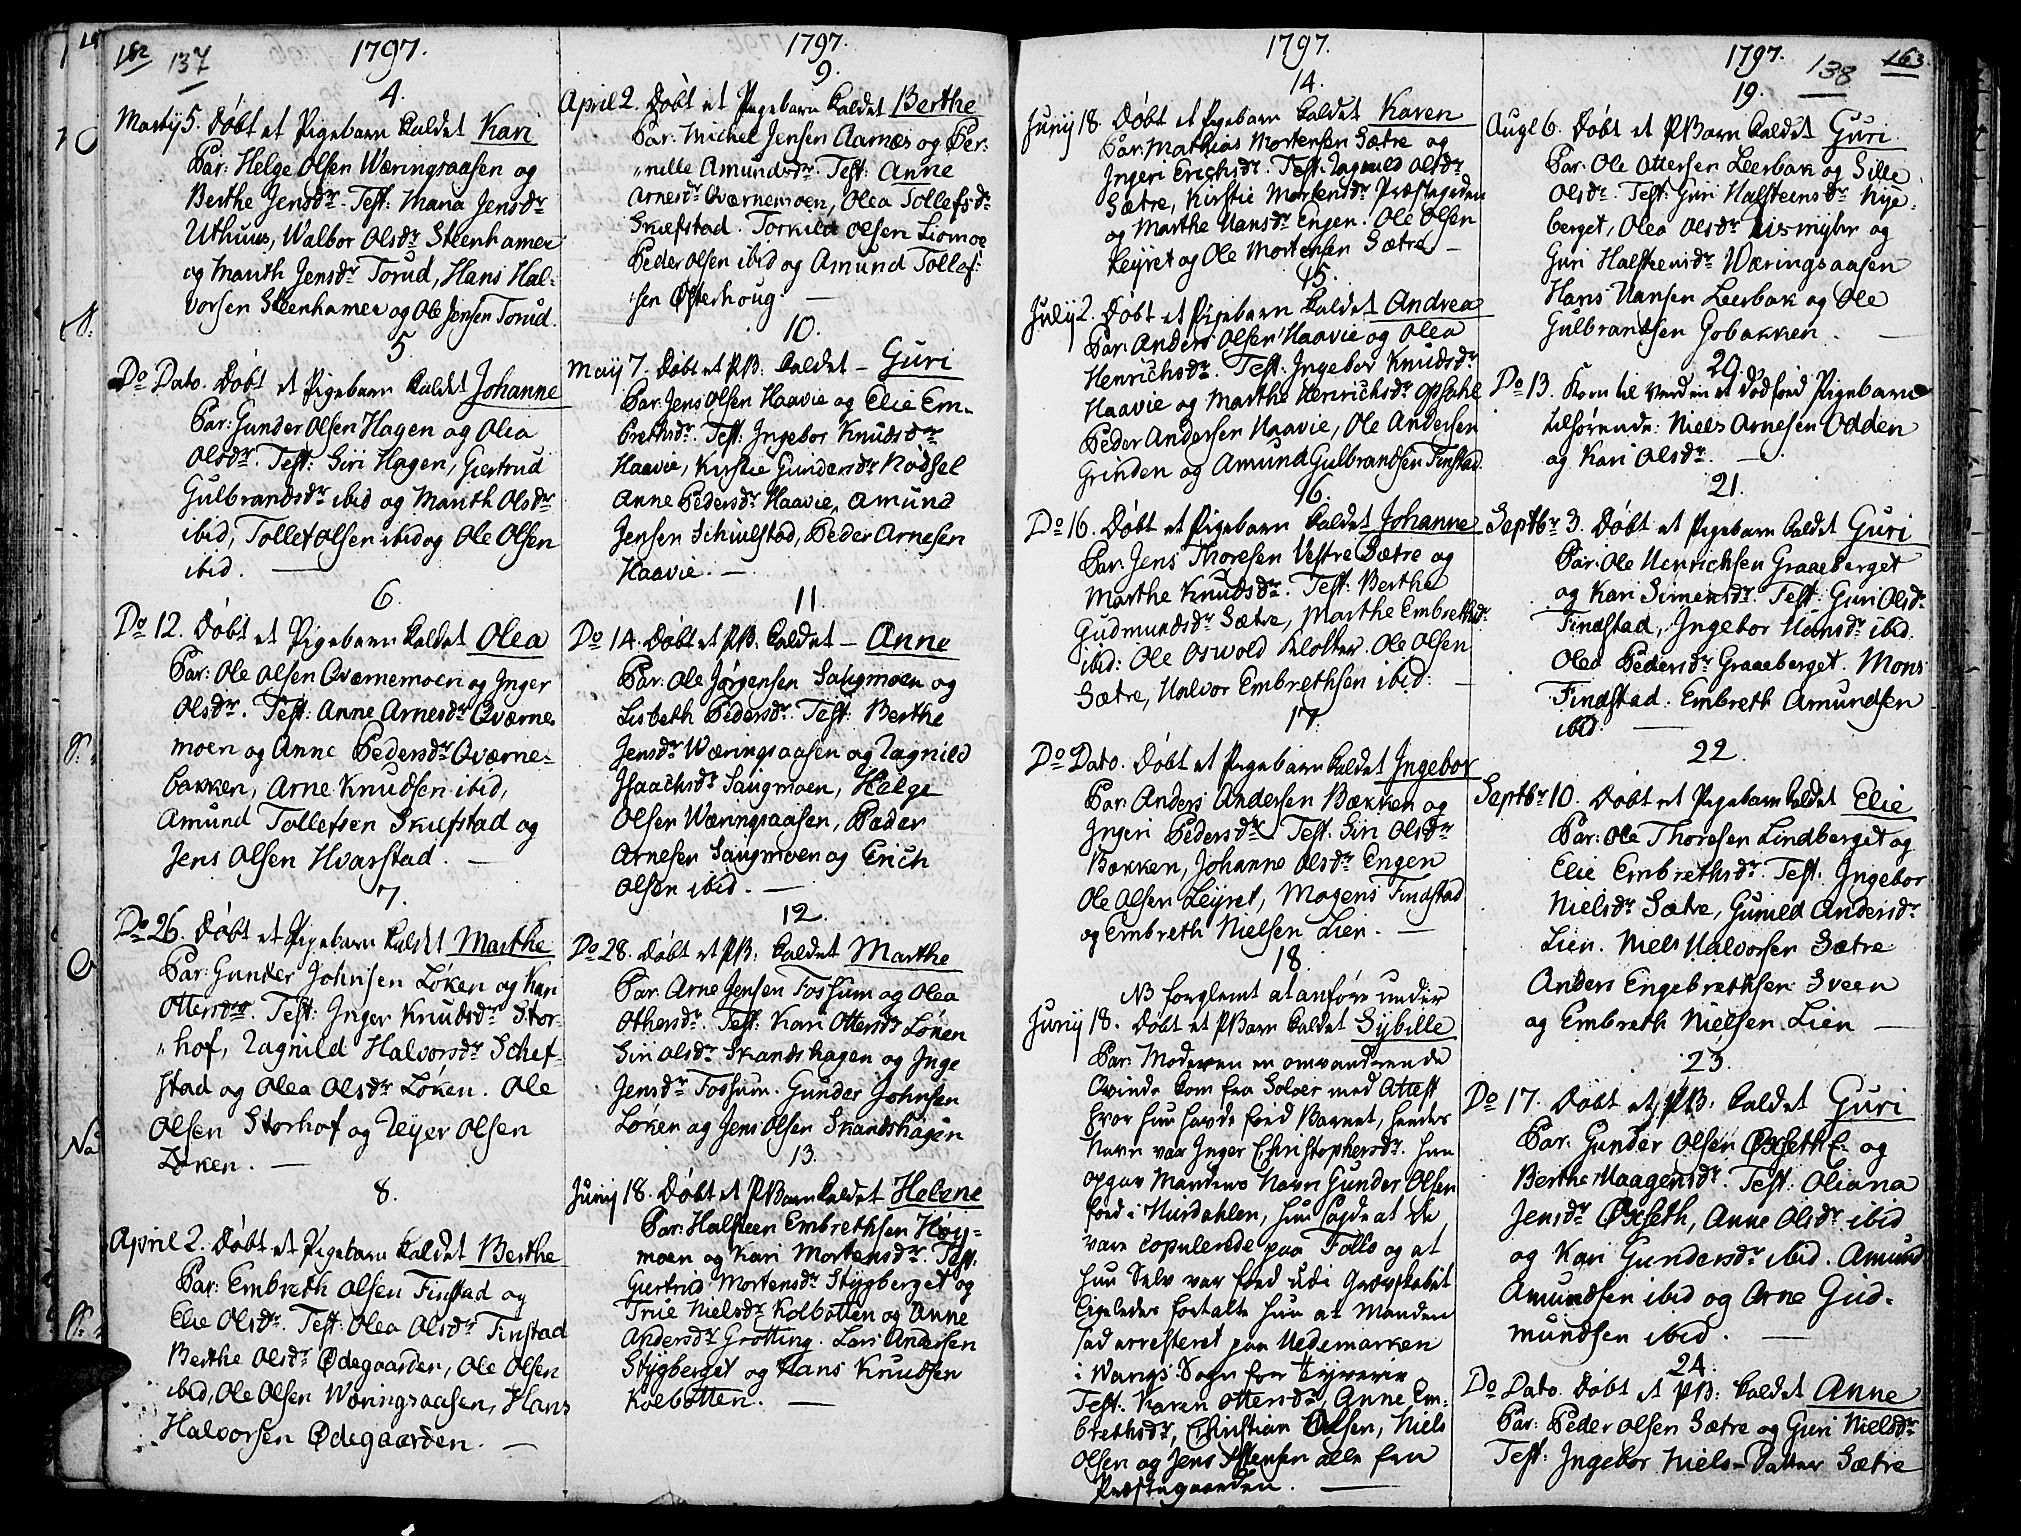 162 137 1797.
4.
Martÿ 5. Døbt et Pigebarn kaldet Kari
Par: Helge Olsen Wæringsaasen og
Berthe Jensdr. Test: Maria Jensdr
Uthuus, Walbor Olsdr Steenhamer
og Marith Jensdr Torud, Hans Hal-
vorsen Steenhamer og Ole Jensen Torud.
5
Do Dato. Døbt et Pigebarn kaldet Johanne
Par: Gunder Olsen Hagen og Olea
Olsdr. Test: Siri Hagen, Giertrud
Gulbrandsdr ibid og Marith Olsdr
ibid, Tollef Olsen ibid og Ole Olsen
ibid.
6.
Do 12. Døbt et Pigebarn kaldet Olea
Par: Ole Olsen Qværnemoen og Inger
Olsdr. Test: Anne Arnesdr Qværne
moen og Anne Pedersdr Qværne-
bakken, Arne Knudsen ibid,
Amund Tollefsen Skiefstad og
Jens Olsen Hvarstad.
7.
Do 26. Døbt et Pigebarn kaldet Marthe
Par: Gunder Johnsen Løken og Kari
Ottersdr. Test: Inger Knudsdr Stor-
hof, Ragnild Halvorsdr Schef-
stad og Olea Olsdr Løken. Ole
Olsen Storhof og Reyer Olsen
Løken.
8.
April 2. Døbt et Pigebarn kaldet Berthe
Par: Embreth Olsen Finstad og
Elie Olsdr. Test: Olea Olsdr Finstad
Berthe Olsdr Ødegaarden, Ole Olsen
ibid, Ole Olsen Wæringsaasen, Hans
Halvorsen Ødegaarden.
1797.
9.
April 2. Døbt et Pigebarn kaldet Berthe
Par: Michel Jensen Aarnes og Per-
nille Amundsdr. Test: Anne
Arnesdr Qværnemoen, Olea Tollefsdr
Skiefstad. Torkild Olsen Liomoe
Peder Olsen ibid og Amund Tollef-
sen Østerhoug.
10.
Maÿ 7. Døbt et PB. kaldet – Guri
Par: Jens Olsen Haavie og Elie Em-
brethsdr. Test: Ingebor Knudsdr
Haavie, Kirstie Gundersdr Nødsel
Anne Pedersdr Haavie, Amund
Jensen Schiulstad, Peder Arnesen
Haavie.
11
Do 14. Døbt et PB. kaldet – Anne
Par: Ole Jørgensen Saugmoen og
Lisbeth Pedersdr. Test: Berthe
Jensdr Wæringsaasen og Ragnild
Isaachsdr Saugmoen, Helge
Olsen Wæringsaasen, Peder
Arnesen Saugmoen og Erich
Olsen ibid.
12.
Do 28. Døbt et PB: kaldet Marthe
Par: Arne Jensen Fossum og Olea
Othersdr. Test: Kari Ottersdr Løken
Siri Olsdr Skandshagen og Inge
Jensdr Fossum. Gunder Johnsen
Løken og Jens Olsen Skandshagen
13.
Junÿ 18. Døbt et PBarn kaldet Helene
Par: Halsteen Embrethsen Høy-
moen og Kari Mortensdr. Test:
Giertrud Mortensdr Stygberget og
True Nielsdr Kolbotten og Anne
Andersdr Grøtting. Lars Andersen
Stygberget og Hans Knudsen
Kolbotten.
1797.
14.
Junÿ 18. Døbt et Pigebarn kaldet Karen
Par: Mathias Mortensen Sætre og
Ingeri Erichsdr. Test: Ragnild Olsdr
Sætre, Kirstie Mortensdr Præstegrden
og Marthe Hansdr Engen. Ole Olsen
Leyret og Ole Mortensen Sætre
15.
Julÿ 2. Døbt et Pigebarn kaldet Andrea
Par: Anders Olsen Haavie og Olea
Henrichsdr. Test: Ingebor Knudsdr
Haavie og Marthe Henrichsdr Opsahl
Peder Andersen Haavie, Ole Andersen
Grinden og Amund Gulbrandsen Finstad.
16.
Do 16. Døbt et Pigebarn kaldet Johanne
Par: Jens Thoresen Vestre Sætre og
Marthe Knudsdr. Test: Berthe
Gudmundsdr Sætre, Marthe Embrethsdr
ibid: Ole Oswold Kloster. Ole Olsen
Sætre, Halvor Embrethsen ibid.
17.
Do Dato. Døbt et Pigebarn kaldet Ingebor
Par: Anders Andersen Bækken og
Ingeri Pedersdr. Test: Siri Olsdr
Bækken, Johanne Olsdr Engen
Ole Olsen Leyret, Mogens Findstad
og Embreth Nielsen Lien.
18.
NB forglemt at anføre under
Junÿ 18. Døbt et PBarn kaldet Sybille
Par: Moderen en omvandrende
Qvinde kom fra Soløer med Attest
hvor hun havde fød Barnet, hendes
Navn var Inger Christophersdr. hun
opgav Mandens Navn Gunder Olsen
fød i Hurdahlen, hun sagde at de
vare copulerede paa Follo og at
hun selv var fød udi Grevskabet
ligeledes fortalte hun at Manden
sad arresteret paa Hedemarken
i Wangs Sogn for Tyverie
Test: Karen Ottersdr, Anne Em-
brethsdr, Christian Olsen, Niels
Olsen og Jens Ostensen alle fra
Præstegaarden.
1797. 138 163
19.
Augt 6. Døbt et PBarn kaldet Guri
Par: Ole Ottersen Leerbak og Sille
Olsdr. Test: Guri Halsteensdr Nye-
berget, Olea Olsdr Diesmyhr og
Guri Halsteensdr Wæringsaasen
Hans Hansen Leerbak og Ole
Gulbrandsen Gobakken.
20.
Do 13. Kom til Verden et dødfød Pigebarn
tilhørende: Niels Arnesen Odden
og Kari Olsdr.
21.
Septbr 3. Døbt et Pigebarn kaldet Guri
Par: Ole Henrichsen Graaeberget
og Kari Simensdr. Test: Guri Olsdr
Findstad, Ingebor Hansdr ibid.
Olea Pedersdr Graaeberget. Mons
Findstad. Embreth Amundsen
ibid.
22.
Septbr 10. Døbt et Pigebarn kaldet Elie
Par: Ole Thoresen Lindberget og
Elie Embrethsdr. Test: Ingebor
Nielsdr Sætre, Gunild Andersdr
Lien. Niels Halvorsen Sætre
Anders Engebrethsen Sveen
og Embreth Nielsen Lien
23.
Do 17. Døbt et PB. kaldet Guri
Par: Gunder Olsen Øxseth E. og
Berthe Haagensdr. Test: Oliana
Jensdr Øxseth, Anne Olsdr ibid
og Kari Gundersdr ibid. Amund
Amundsen ibid og Arne Gud-
mundsen ibid.
24.
Do Dato. Døbt et PB: kaldet Anne
Par: Peder Olsen Sætre og Guri Nielsdr
Test: Ingebor Niels-Datter Sætre